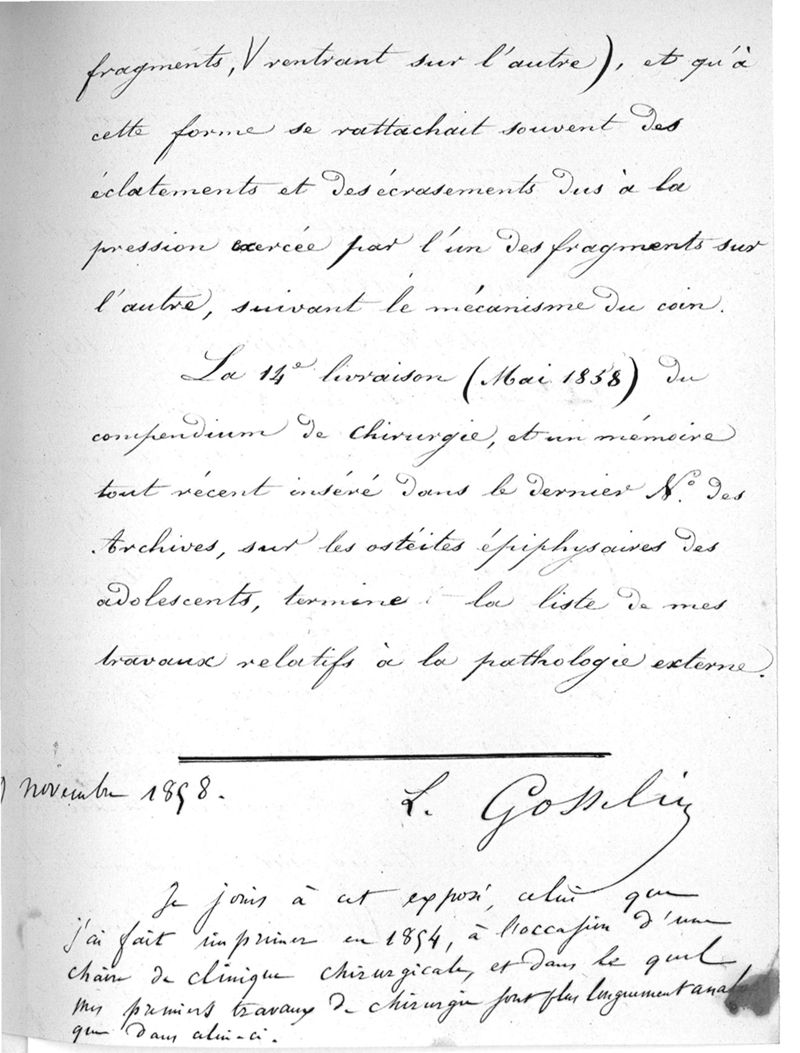 fragments, V rentrant sur l'autre), et qu'à
cette forme se rattachait souvent des
éclatements et des écrasements dus à la
pression exercée par l'un des fragments sur
l'autre, suivant le mécanisme du coin.
La 14e livraison (Mai 1858) du
compendium de chirurgie, et un mémoire
tout récent inséré dans le dernier No. des
Archives, sur les ostéites épiphysaires des
adolescents, termine la liste de mes
travaux relatifs à la pathologie externe.
novembre 1858.
L. Gosselin
Je joins à cet exposé, celui que
j'ai fait imprimer en 1854, à l'occasion d'une
chaire de clinique chirurgicale, et dans le quel
mes premiers travaux de chirurgie sont plus longuement
que dans celui-ci.